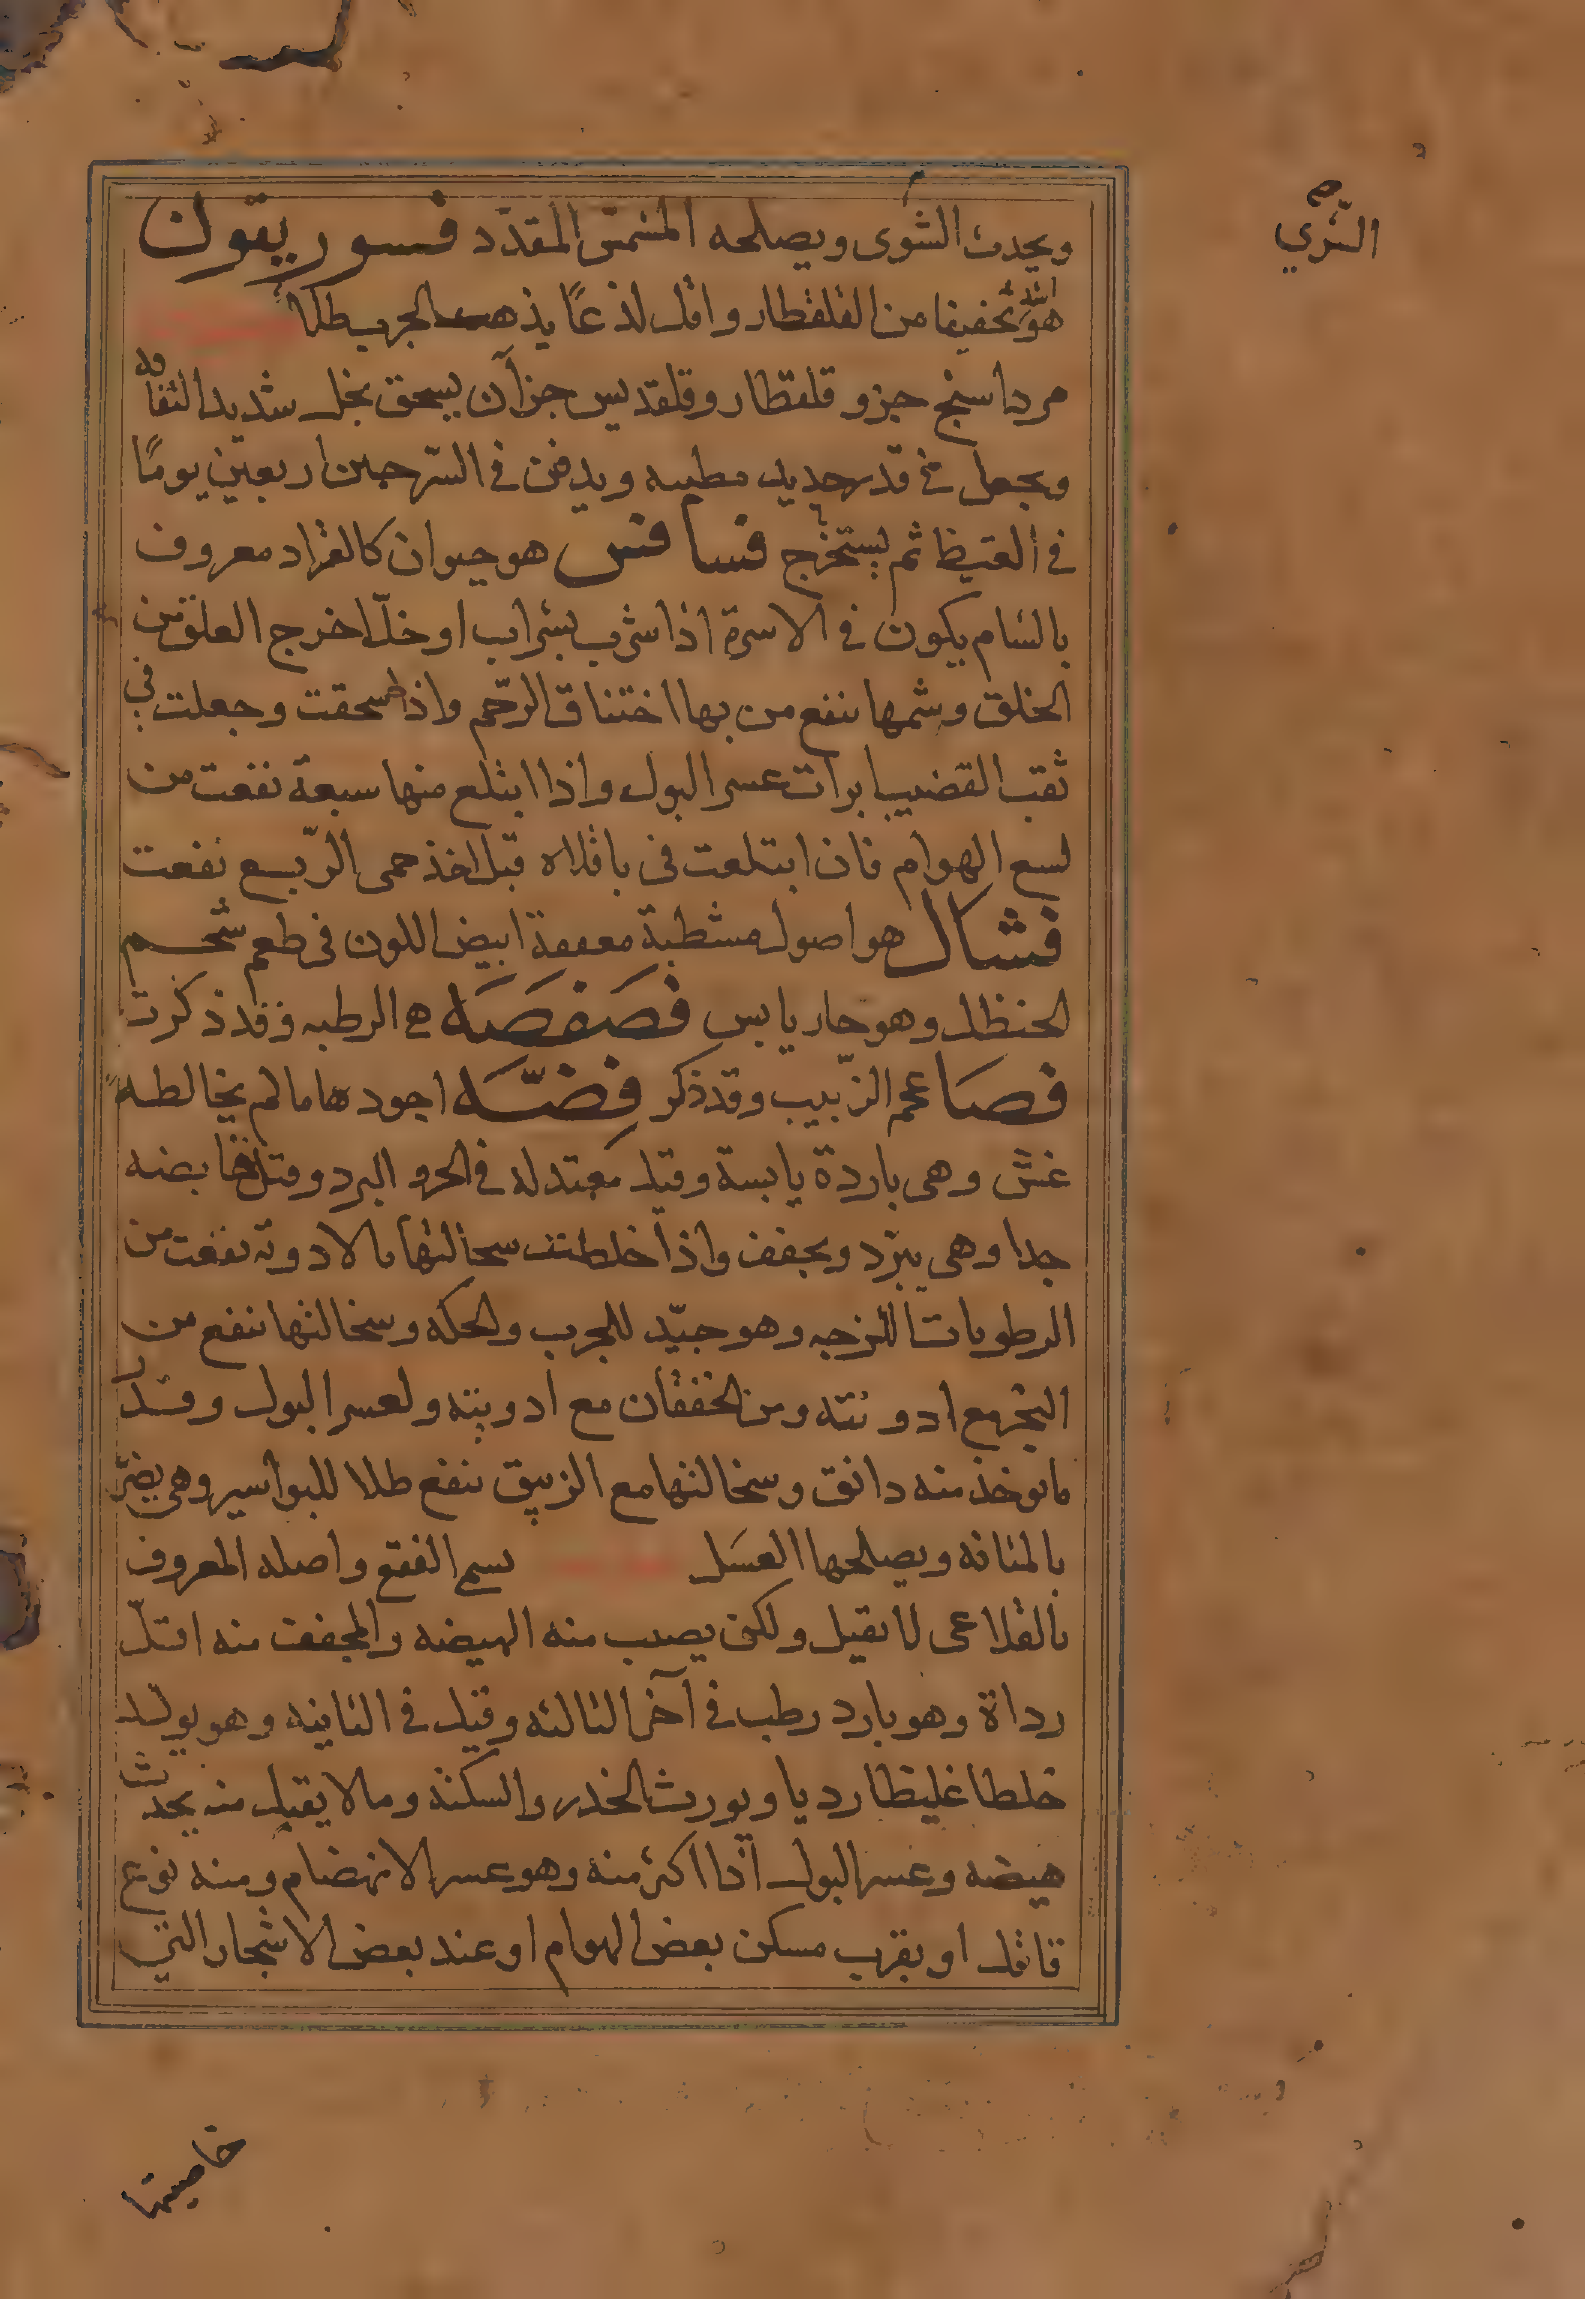 ويحدث الشوى ويصلحه المشمش المقدد فسوريقون
هو اشد تجفيفا من القلقطار واقل لذعًا يذهب الجرب طلاء
مرداسنج جزو قلقطار وقلقديس جزآن يسحق بخل شديد الثقافه
ويجعل في قدر جديد مطينه ويدفن في السرجين اربعين يومًا
في القيظ ثم يستخرج فسافس هو حيوان كالقراد معروف
بالشام يكون في الاسرة اذا شرب بشراب او خلّ اخرج العلق من
الحلق وشمها ينفع من بها اختناق الرّحم واذا سحقت وجعلت في
ثقب القضيب ابرات عسر البول واذا ابتلع منها سبعة نفعت من
لسع الهوام فان ابتلعت في باقلاه قبل اخذ حمى الرّبع نفعت
فشال هو اصول مشطبة معففة ابيض اللون في طعم شحم
الحنظل وهو حار يابس فصَفصَه هي الرطبه وقد ذكرت
فصَا عجم الزّبيب وقد ذكر فِضّه اجودها ما لم يخالطه
غشّ وهي باردة يابسة وقيل معتدله في الحر و البرد وقيل قابضه
جدا وهي يبرّد ويجفف واذا خلطت سحالتها بالادوية نفعت من
الرطوبات اللزجه وهو جيّد للجرب والحكه وسحالتها ينفع من
البخر مع ادويته ومن الخفقان مع ادويته ولعسر البول وقدر
ما يوخذ منه دانق وسحالتها مع الزيبق ينفع طلا للبواسير وهي يضرّ
بالمثانه ويصلحها العسَل يسمى الفقع واصله المعروف
بالقلاعى لا يقتل ولكن يصيب منه الهيضه والمجفف منه اقلّ
رداة وهو بارد رطب في آخر الثالثه وقيل في الثانيه وهو يولد
خلطا غليظا رديا ويورث الخدر والسكته وما لا يقتل منه يحدث
هيضه وعسر البول اذا اكثر منه وهو عسر الانهضام ومنه نوع
قاتل او بقرب مسكن بعض الهوام او عند بعض الاشجار التي
خاصيتها